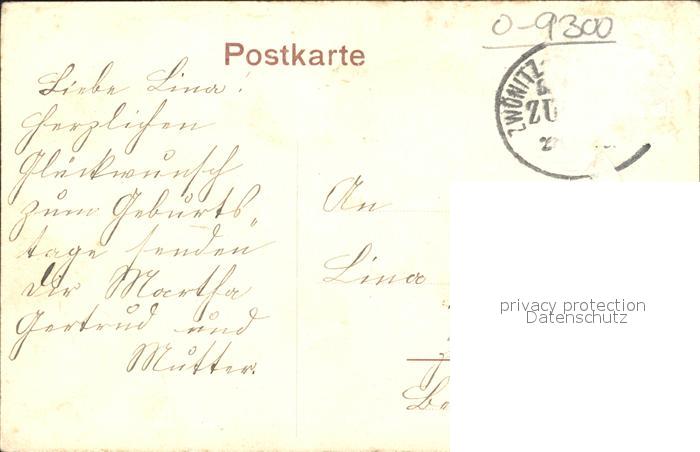 O-9300
Postkarte
ZWÖNITZ
ZU
Liebe Lina!
Herzlichen
Glückwunsch
zum Geburts„
tage senden
Dir Martha
Gertrud und
Mutter.
An
Lina
privacy protection
Datenschutz
Be